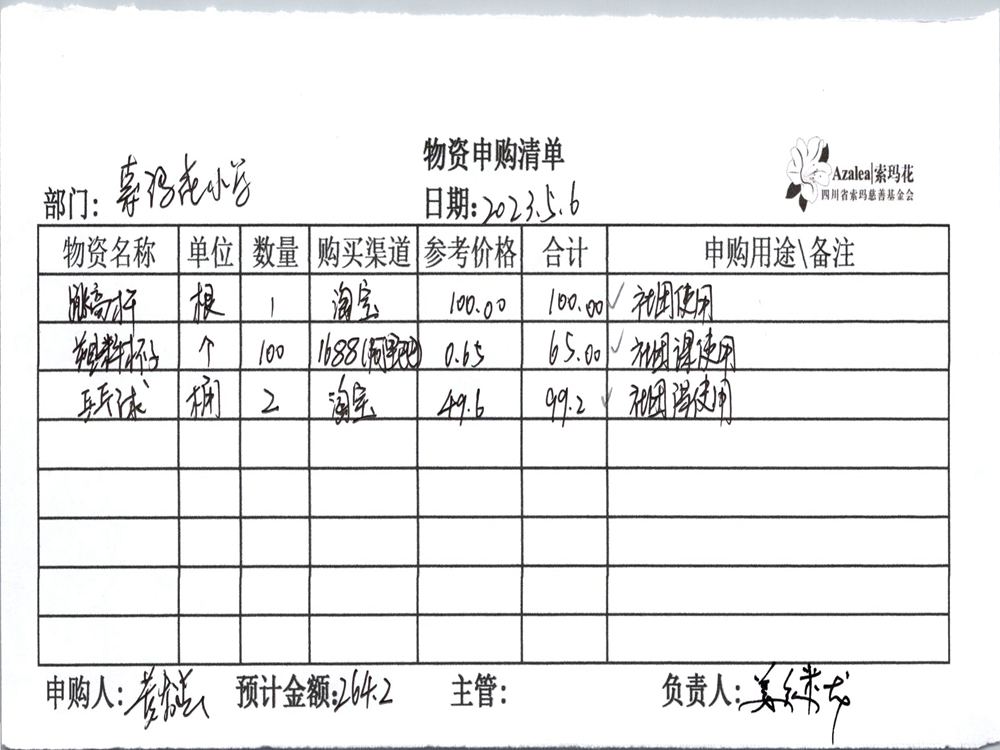 物资申购清单
Azalea|索玛花
四川省索玛慈善基金会
部门: 索玛花小学 日期:2023.5.6
物资名称 单位 数量 购买渠道 参考价格 合计 申购用途\备注
跳高杆 根 1 淘宝 100.00 100.00 ✓ 社团使用
塑料杯子 个 100 1688(阿里巴巴) 0.65 65.00 ✓ 社团课使用
乒乓球 桶 2 淘宝 49.6 99.2 ✓ 社团课使用
申购人: 预计金额:264.2 主管: 负责人: